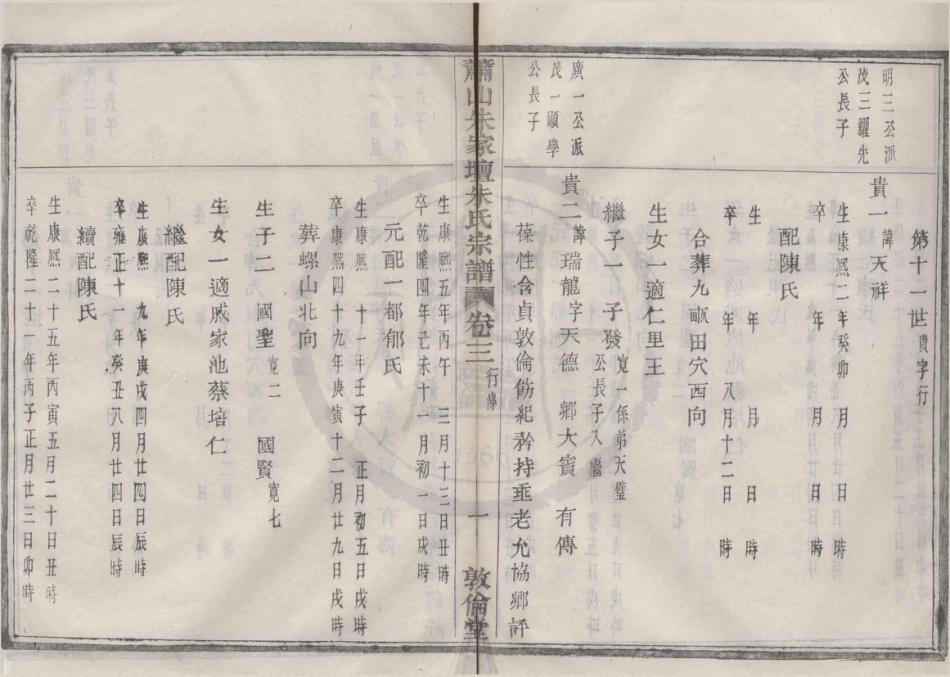 第十二世貴字行
明三公派
茂三耀先
公長子
貴一諱天祥
生康熙二年癸卯 月 日 時
卒 年 月 日 時
配陳氏
生 年 月 日 時
卒 年 八月十二日 時
合葬九畝田穴西向
生女一適仁里王
繼子一 子發寬一係弟天璧公長子入繼
廣一公派
茂一顯學
公長子
貴二諱瑞龍字天德 鄉大賓 有傳
葆性含貞敦倫飭紀矜持垂老允協鄉評
蕭山朱家壇朱氏宗譜 卷三 行傳 一 敦倫堂
生康熙五年丙午 三月十三日丑時
卒乾隆四年己未十一月初一日戌時
元配一都郁氏
生康熙 十一年壬子 正月初五日戌時
卒康熙四十九年庚寅十二月廿九日戌時
葬螺山北向
生子二 國聖寬二 國賢寬七
生女一適戚家池蔡培仁
繼配陳氏
生康熙 九年庚戌四月廿四日辰時
卒雍正十一年癸丑八月廿四日辰時
續配陳氏
生康熙二十五年丙寅五月二十日丑時
卒乾隆二十一年丙子正月廿三日卯時